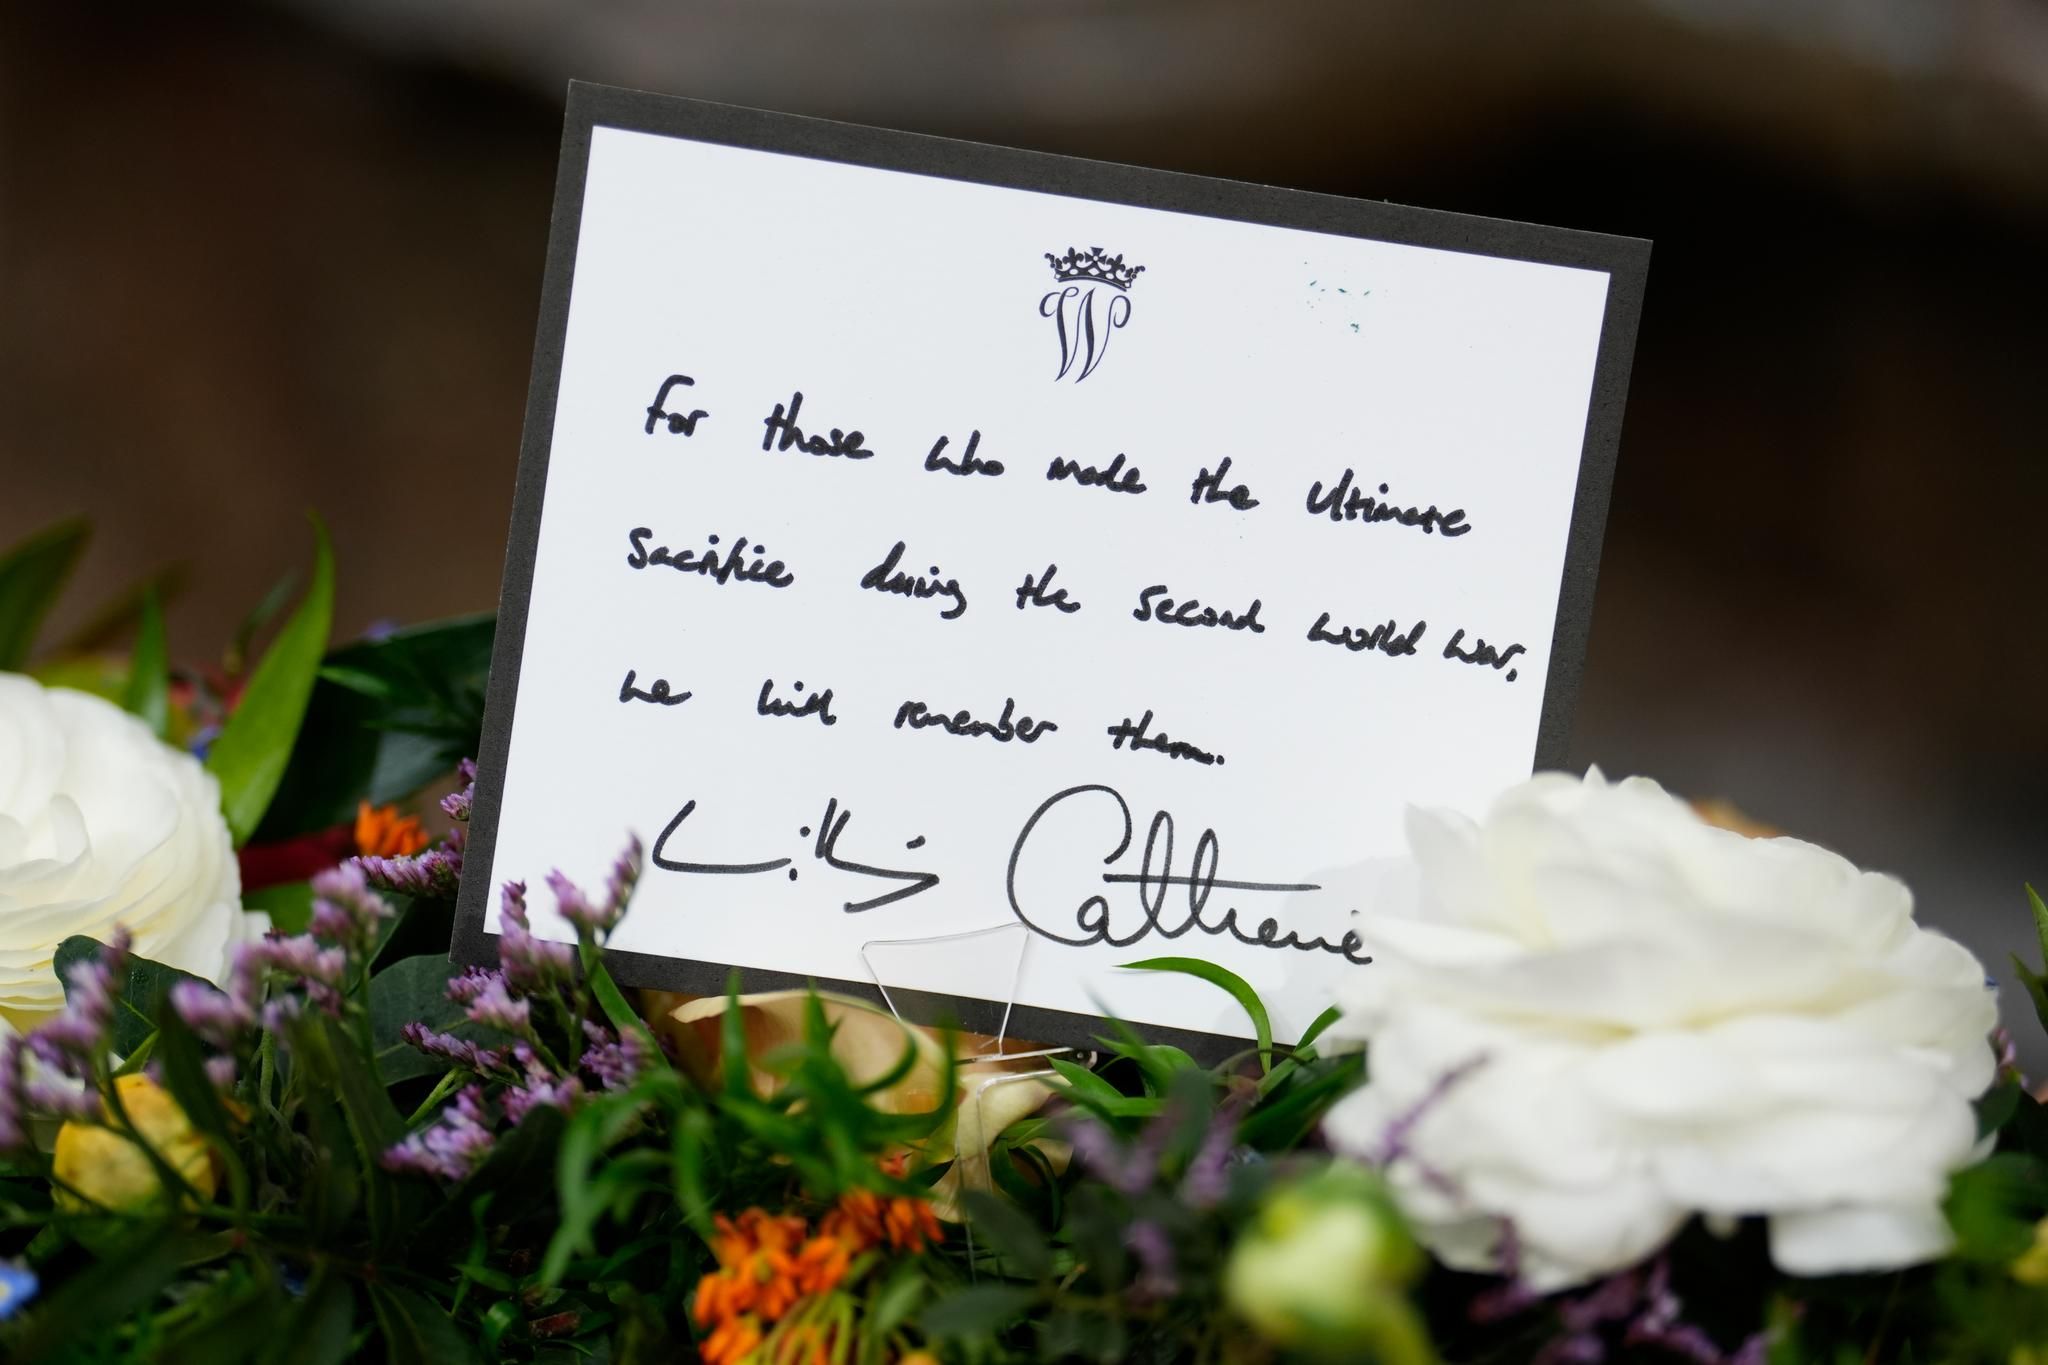 W
For those who made the ultimate
Sacrifice during the Second World War,
we will remember them.
William Catherine